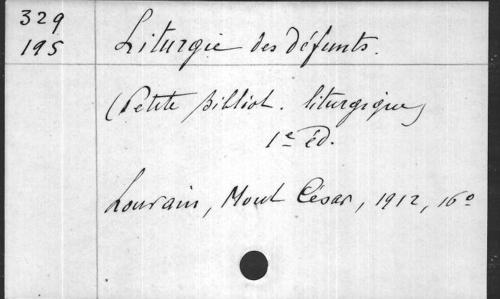 329
195
Liturgie des défunts.
(Petite Bibliot. liturgique)
1e éd.
Louvain, Mont César, 1912, 16o